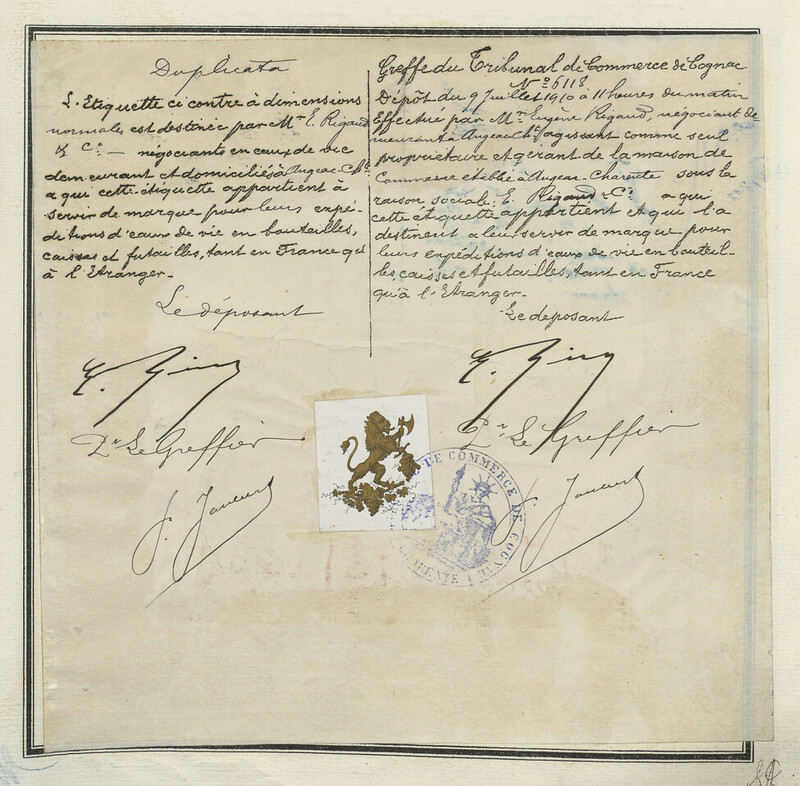 Duplicata
L'Etiquette ci contre à dimensions
normales est destinée par Mr E. Rigaud
& Cie — négociants en eaux de vie
demeurant et domiciliés à Angeac-Chte
a qui cette étiquette appartient à
servir de marque pour leurs expé-
ditions d'eaux de vie en bouteilles,
caisses et futailles, tant en France qu'
à l'Etranger.
Le déposant
Pr Le Greffier
Greffe du Tribunal de Commerce de Cognac
No 6118
Dépôt du 9 Juillet 1910 à 11 heures du matin
Effectué par Mr Eugène Rigaud, négociant de-
meurant à Angeac Chte, agissant comme seul
propriétaire et gérant de la maison de
Commerce établie à Angeac-Charente sous la
raison sociale: E. Rigaud & Cie a qui
cette étiquette appartient et qui l'a
destinent a leur servir de marque pour
leurs expéditions d'eaux de vie en bouteil-
les caisses et futailles, tant en France
qu'à l'Etranger.
Le deposant
Pr Le Greffier
DE COMMERCE DE COGNAC
CHARENTE